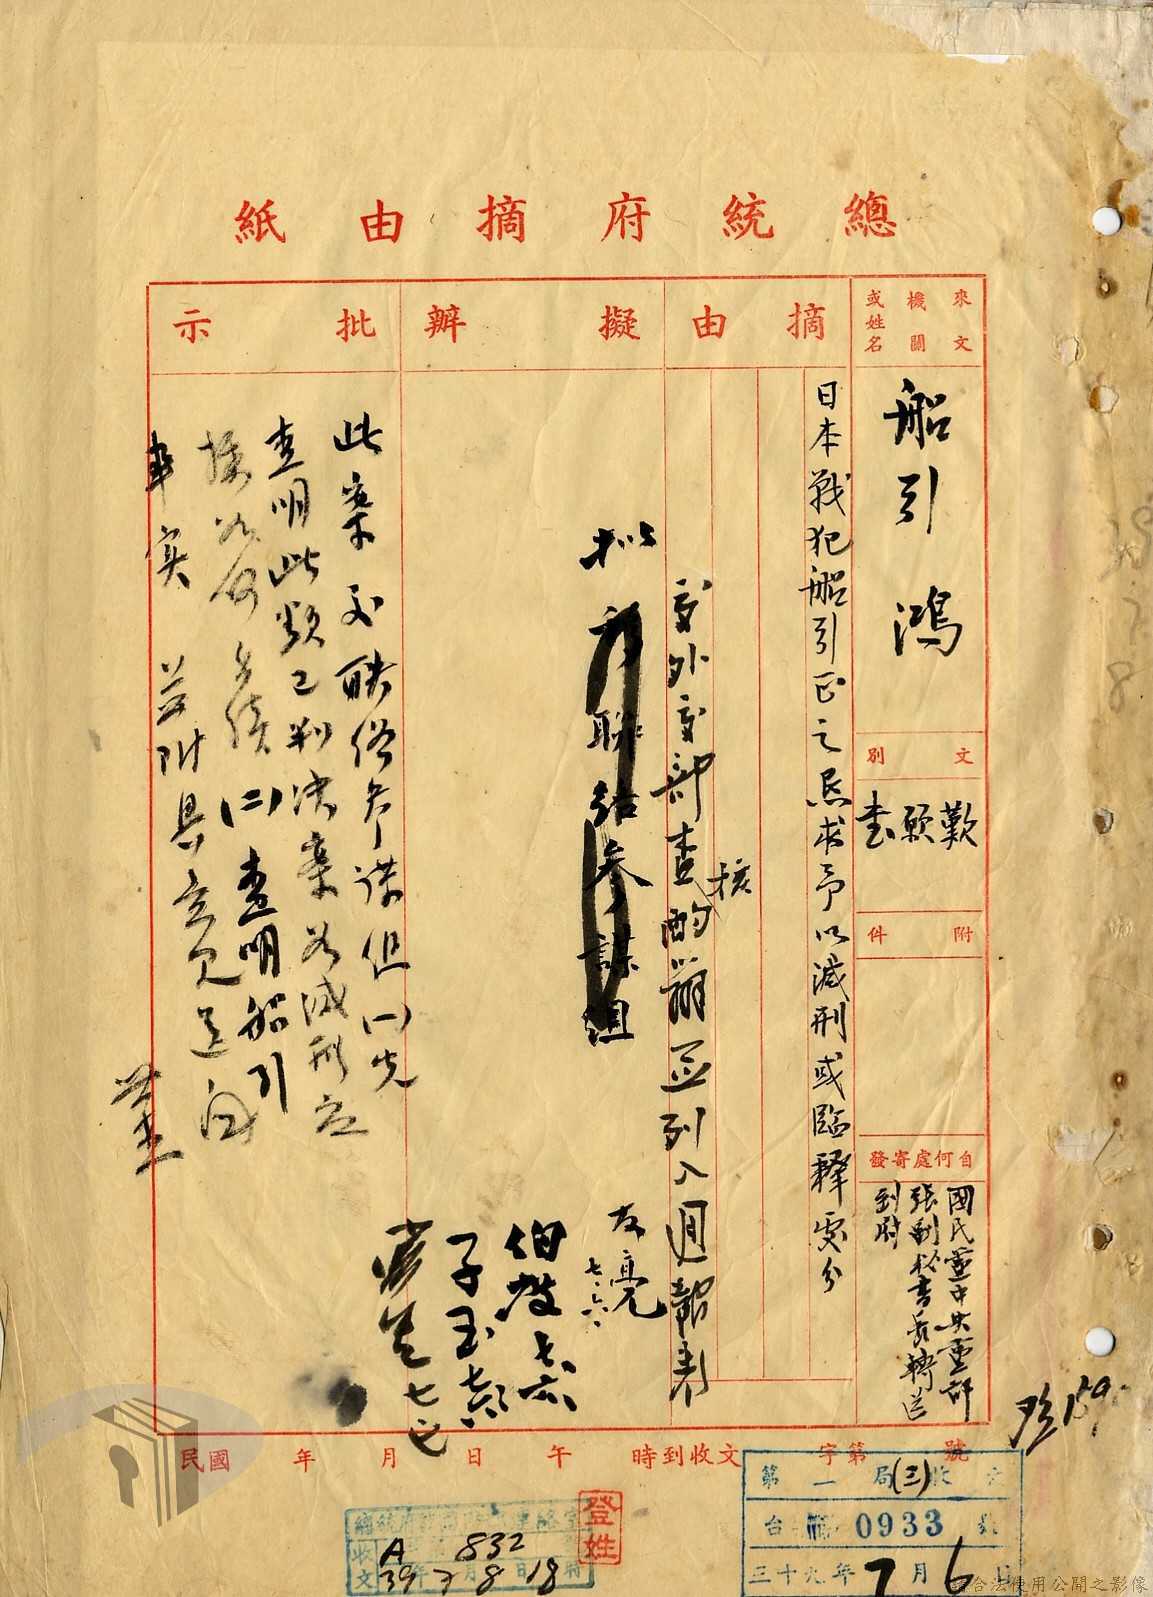 總統府摘由紙
來文
機關
或姓名
船引 鴻
文別
歎願書
附件
自何處寄發
國民黨中央黨部
張副秘書長轉送
到府
摘由
日本戰犯船引正之懇求予以減刑或臨釋處分
擬辦
交外交部查酌辦並列入週報表
核
擬
聯
參謀組
友亮
七、六、
伯
七六
子玉
七六
七七
批示
此案交聯俗參謀但(一)先
查明此類已判決案如減刑應
採如何手續(二)查明船引
事實 並附具意見送向
民國 年 月 日 午 時到收文 字第 號
第一局(三)收文
台 0933 號
三十九年7月6日
登姓
收文
A 832
39年7月8日18時